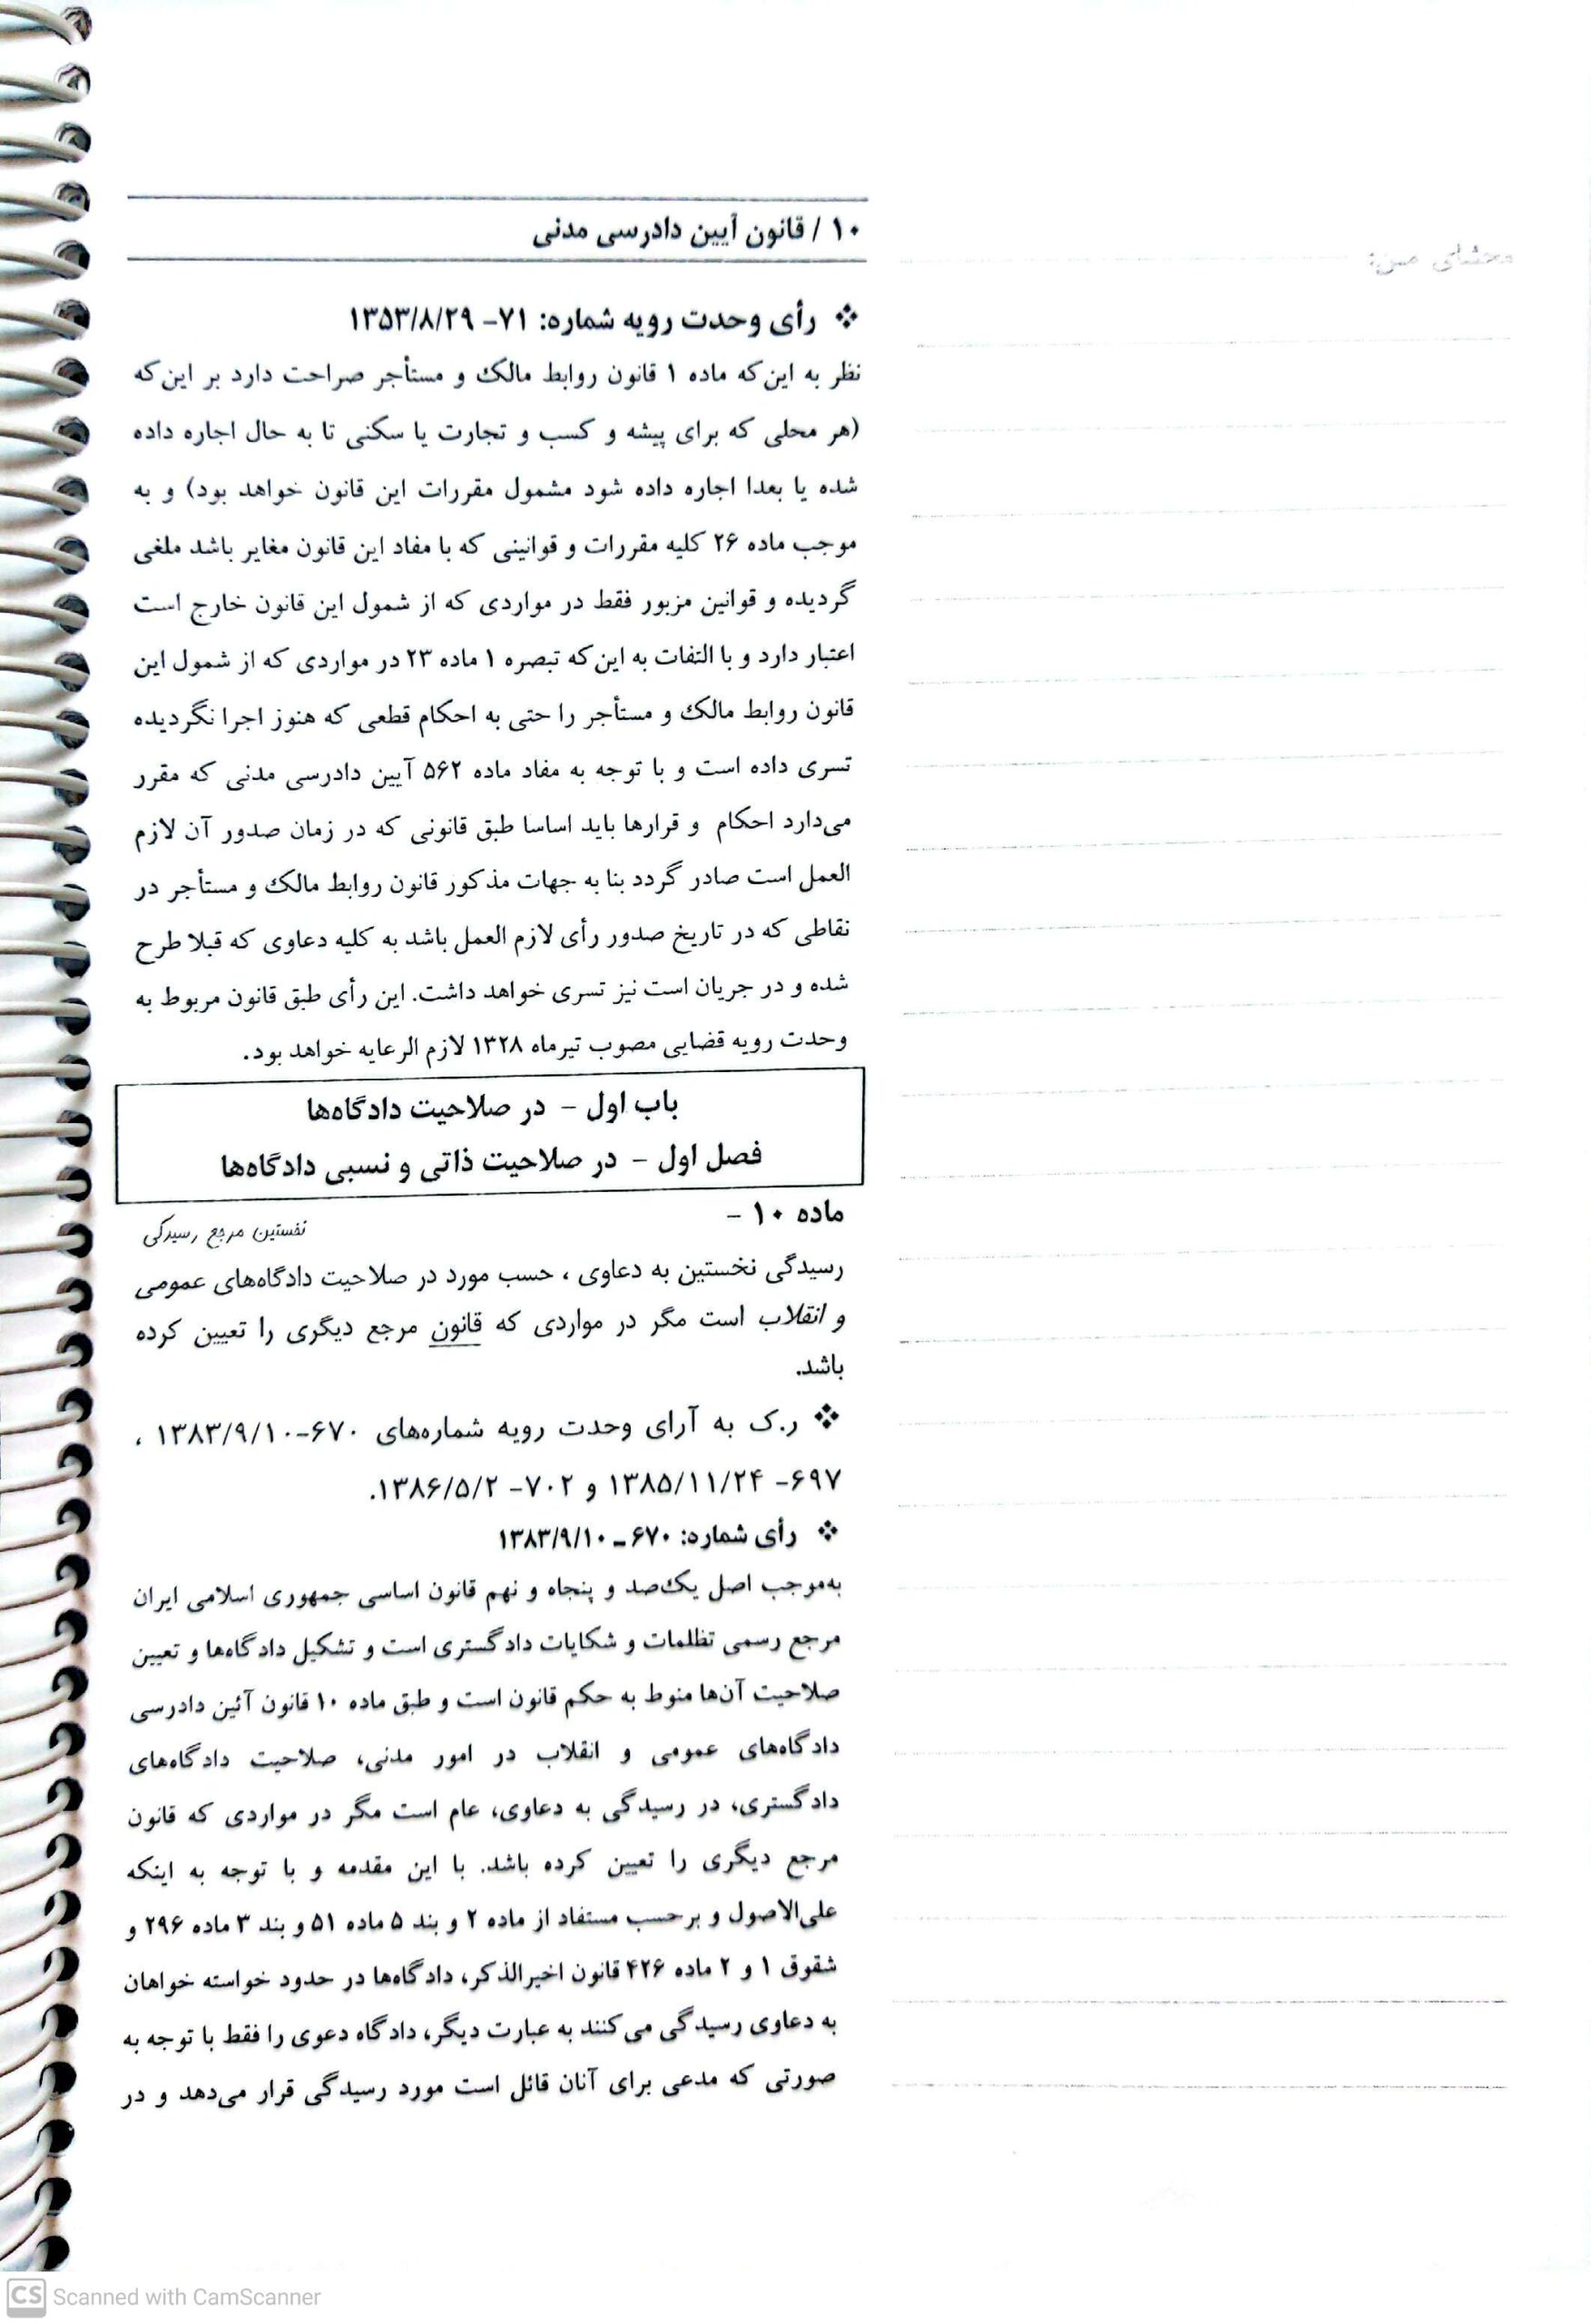 ۱۰ / قانون آیین دادرسی مدنی
محشای من:
❖ رأی وحدت رویه شماره: ۷۱- ۱۳۵۳/۸/۲۹
نظر به این‌که ماده ۱ قانون روابط مالک و مستأجر صراحت دارد بر این‌که
(هر محلی که برای پیشه و کسب و تجارت یا سکنی تا به حال اجاره داده
شده یا بعدا اجاره داده شود مشمول مقررات این قانون خواهد بود) و به
موجب ماده ۲۶ کلیه مقررات و قوانینی که با مفاد این قانون مغایر باشد ملغی
گردیده و قوانین مزبور فقط در مواردی که از شمول این قانون خارج است
اعتبار دارد و با التفات به این‌که تبصره ۱ ماده ۲۳ در مواردی که از شمول این
قانون روابط مالک و مستأجر را حتی به احکام قطعی که هنوز اجرا نگردیده
تسری داده است و با توجه به مفاد ماده ۵۶۲ آیین دادرسی مدنی که مقرر
می‌دارد احکام و قرارها باید اساسا طبق قانونی که در زمان صدور آن لازم
العمل است صادر گردد بنا به جهات مذکور قانون روابط مالک و مستأجر در
نقاطی که در تاریخ صدور رأی لازم العمل باشد به کلیه دعاوی که قبلا طرح
شده و در جریان است نیز تسری خواهد داشت. این رأی طبق قانون مربوط به
وحدت رویه قضایی مصوب تیرماه ۱۳۲۸ لازم الرعایه خواهد بود.
باب اول - در صلاحیت دادگاه‌ها
فصل اول - در صلاحیت ذاتی و نسبی دادگاه‌ها
ماده ۱۰ -
نخستین مرجع رسیدگی
رسیدگی نخستین به دعاوی ، حسب مورد در صلاحیت دادگاه‌های عمومی
و انقلاب است مگر در مواردی که قانون مرجع دیگری را تعیین کرده
باشد.
❖ ر.ک به آرای وحدت رویه شماره‌های ۶۷۰-۱۳۸۳/۹/۱۰ ،
۶۹۷- ۱۳۸۵/۱۱/۲۴ و ۷۰۲- ۱۳۸۶/۵/۲.
❖ رأی شماره: ۶۷۰ ـ ۱۳۸۳/۹/۱۰
به‌موجب اصل یک‌صد و پنجاه و نهم قانون اساسی جمهوری اسلامی ایران
مرجع رسمی تظلمات و شکایات دادگستری است و تشکیل دادگاه‌ها و تعیین
صلاحیت آن‌ها منوط به حکم قانون است و طبق ماده ۱۰ قانون آئین دادرسی
دادگاه‌های عمومی و انقلاب در امور مدنی، صلاحیت دادگاه‌های
دادگستری، در رسیدگی به دعاوی، عام است مگر در مواردی که قانون
مرجع دیگری را تعیین کرده باشد. با این مقدمه و با توجه به اینکه
علی‌الاصول و برحسب مستفاد از ماده ۲ و بند ۵ ماده ۵۱ و بند ۳ ماده ۲۹۶ و
شقوق ۱ و ۲ ماده ۴۲۶ قانون اخیرالذکر، دادگاه‌ها در حدود خواسته خواهان
به دعاوی رسیدگی می‌کنند به عبارت دیگر، دادگاه دعوی را فقط با توجه به
صورتی که مدعی برای آنان قائل است مورد رسیدگی قرار می‌دهد و در
CS Scanned with CamScanner